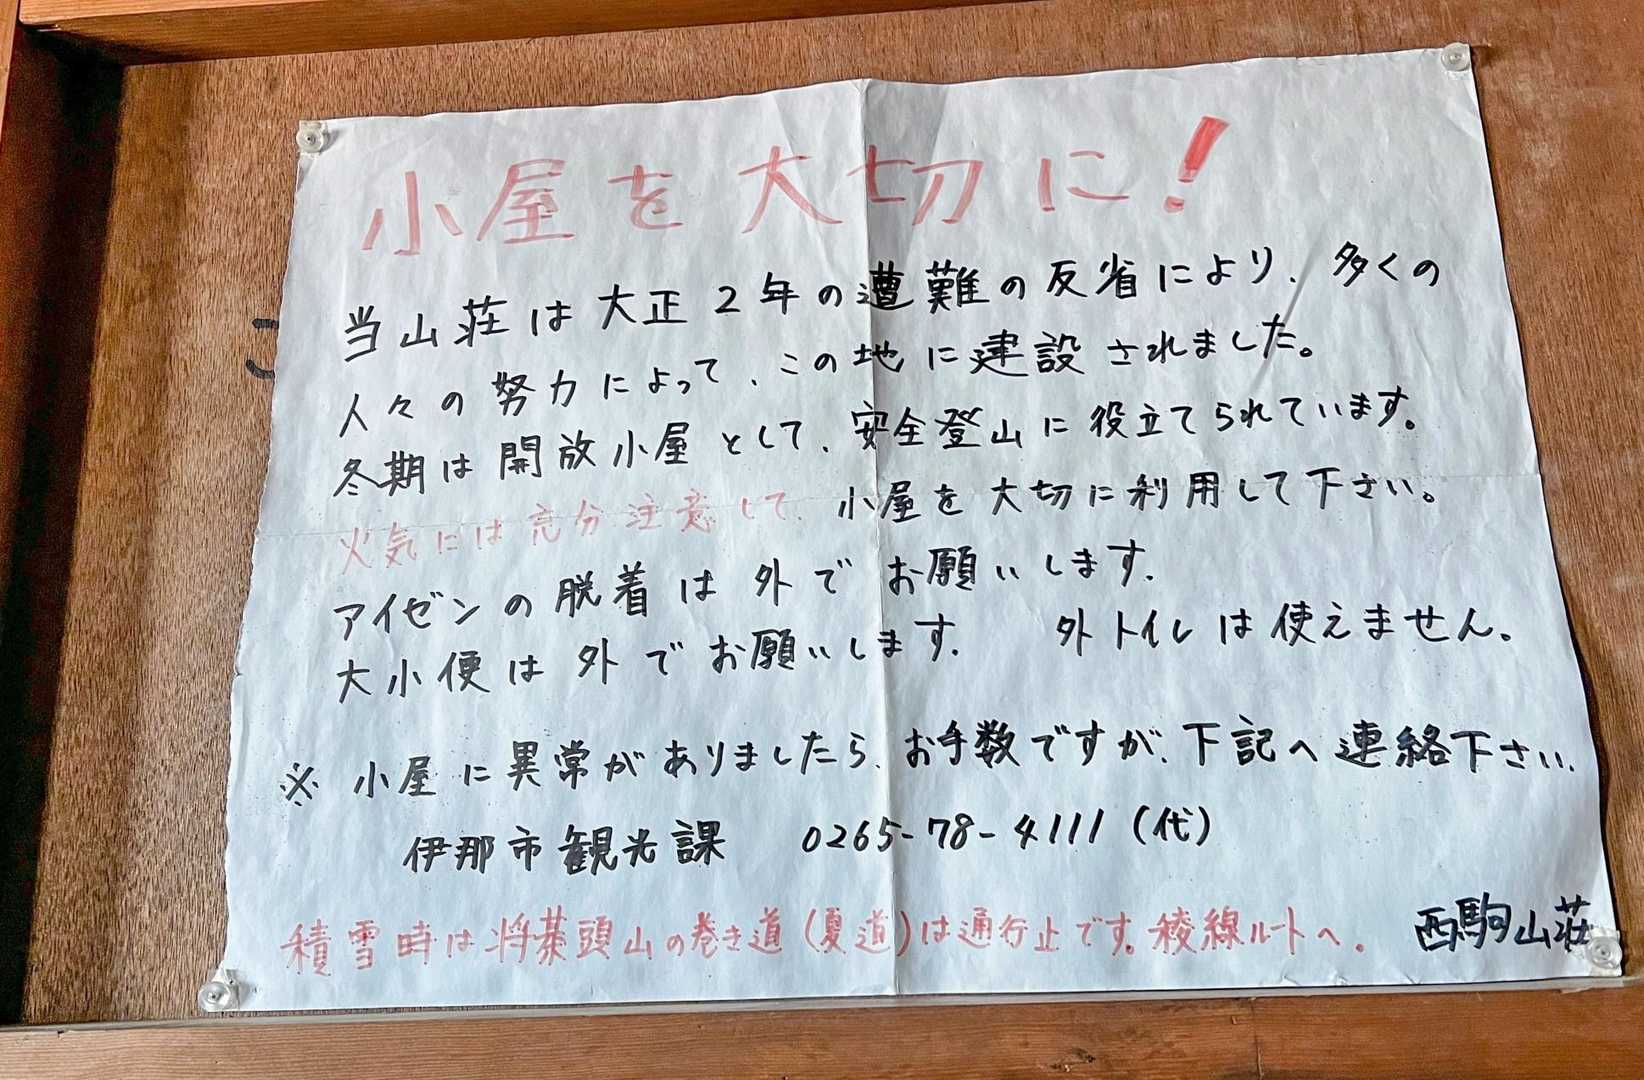 小屋を大切に!
当山荘は大正2年の遭難の反省により、多くの
人々の努力によって、この地に建設されました。
冬期は開放小屋として、安全登山に役立てられています。
火気には充分注意して、小屋を大切に利用して下さい。
アイゼンの脱着は外でお願いします。
大小便は外でお願いします。 外トイレは使えません。
※ 小屋に異常がありましたら、お手数ですが、下記へ連絡下さい。
伊那市観光課 0265-78-4111(代)
積雪時は将棊頭山の巻き道(夏道)は通行止です。稜線ルートへ。
西駒山荘